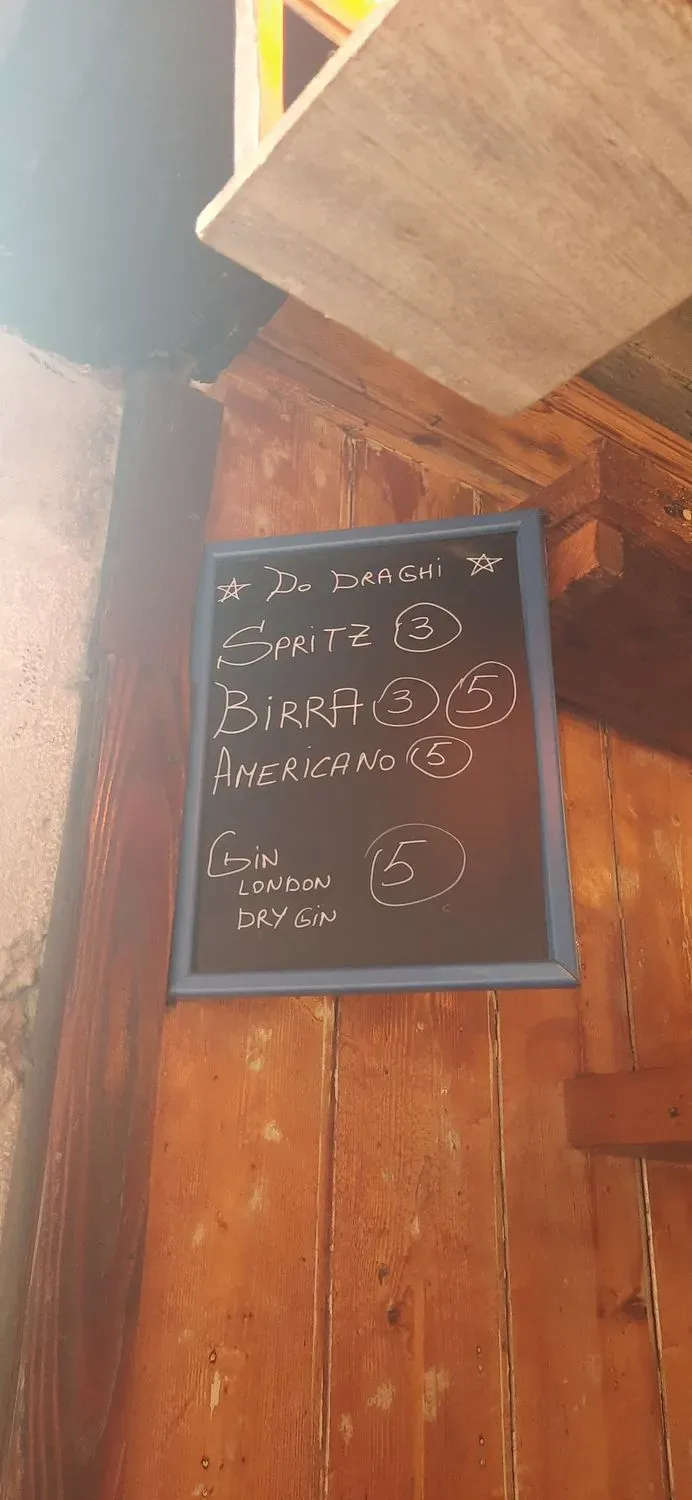 ☆ Do DRAGHi ☆
SPRiTZ 3
BiRRA 3 5
AMERICANO 5
GiN 5
LONDON
DRY GiN